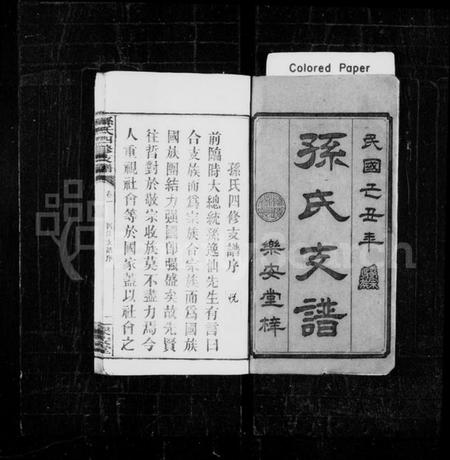 Colored Paper
民國乙丑年
孫氏支譜
樂安堂梓
孫氏四修支譜序
前臨時大總統孫逸仙先生有言曰
合支族而爲宗族合宗族而爲國族
國族團結力强國即强盛矣故先賢
往哲對於敬宗收族莫不盡力焉今
人重視社會等於國家蓋以社會之
孫氏四修支譜